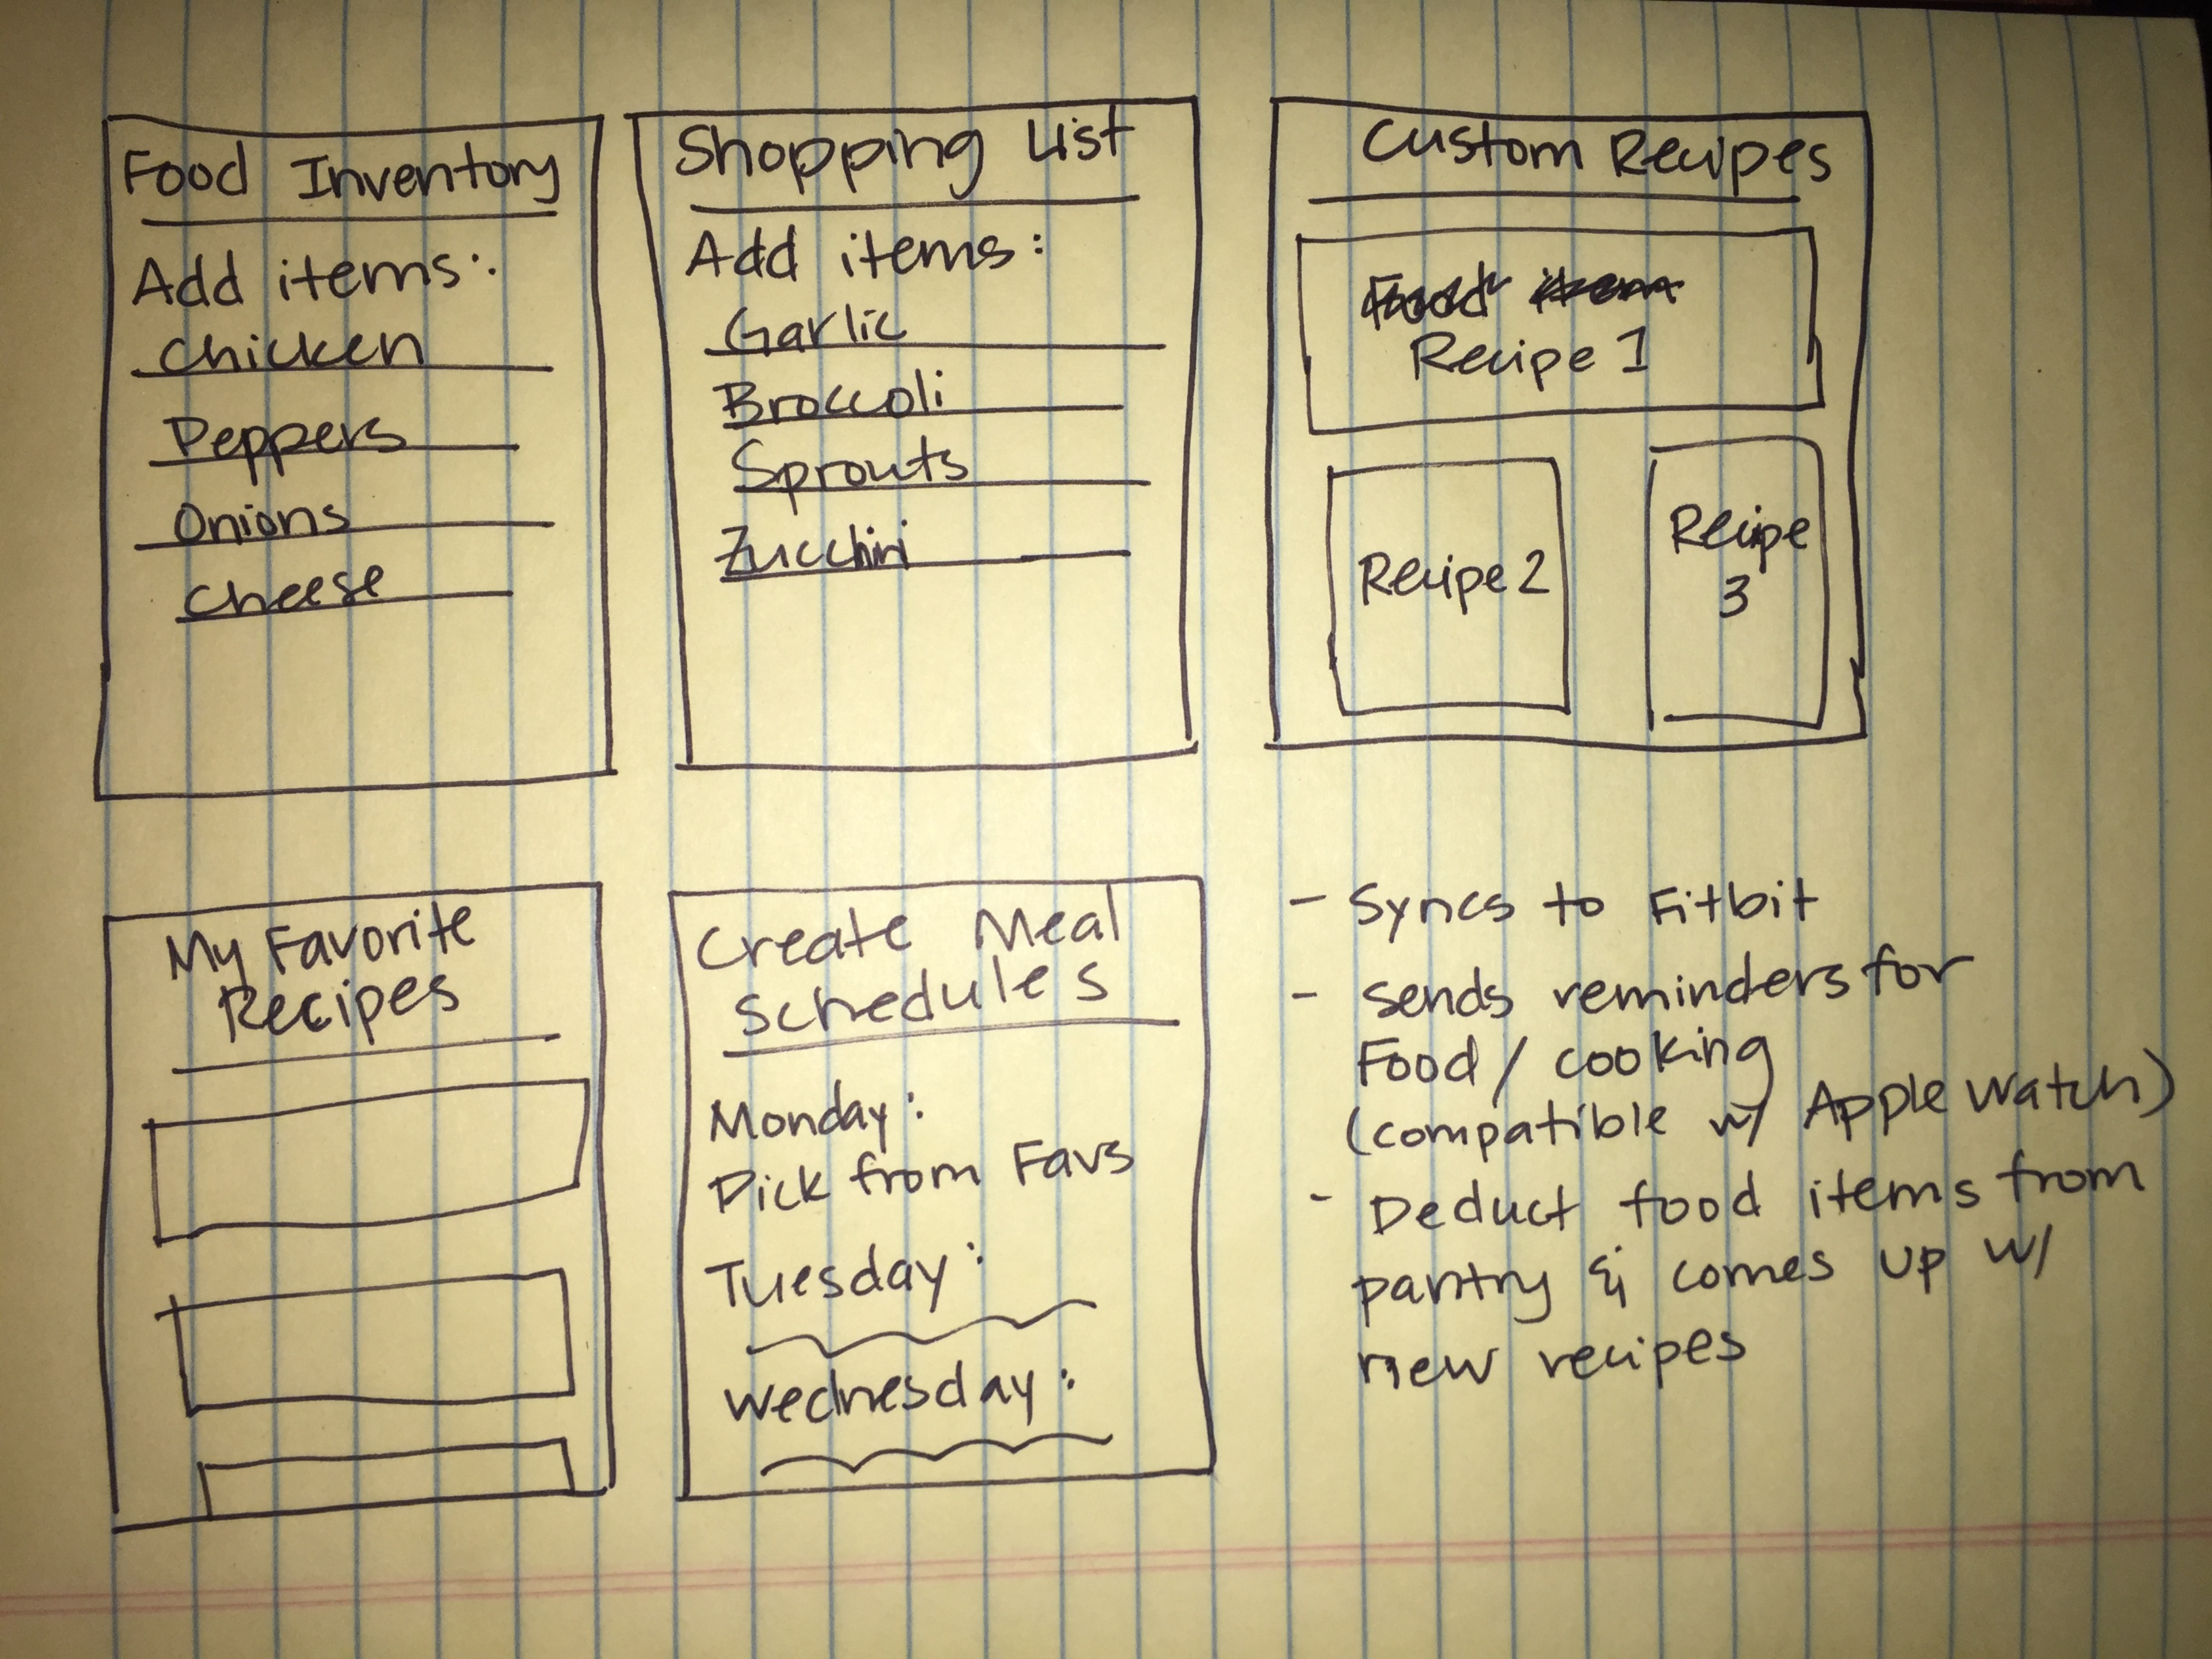 Food Inventory
Add items:
Chicken
Peppers
Onions
Cheese
Shopping List
Add items:
Garlic
Broccoli
Sprouts
Zucchini
Custom Recipes
Food item
Recipe 1
Recipe 2
Recipe
3
My Favorite
Recipes
Create Meal
Schedules
Monday:
Pick from Favs
Tuesday:
Wednesday:
- Syncs to Fitbit
- Sends reminders for
Food / cooking
(compatible w/ Apple Watch)
- Deduct food items from
pantry & comes up w/
new recipes